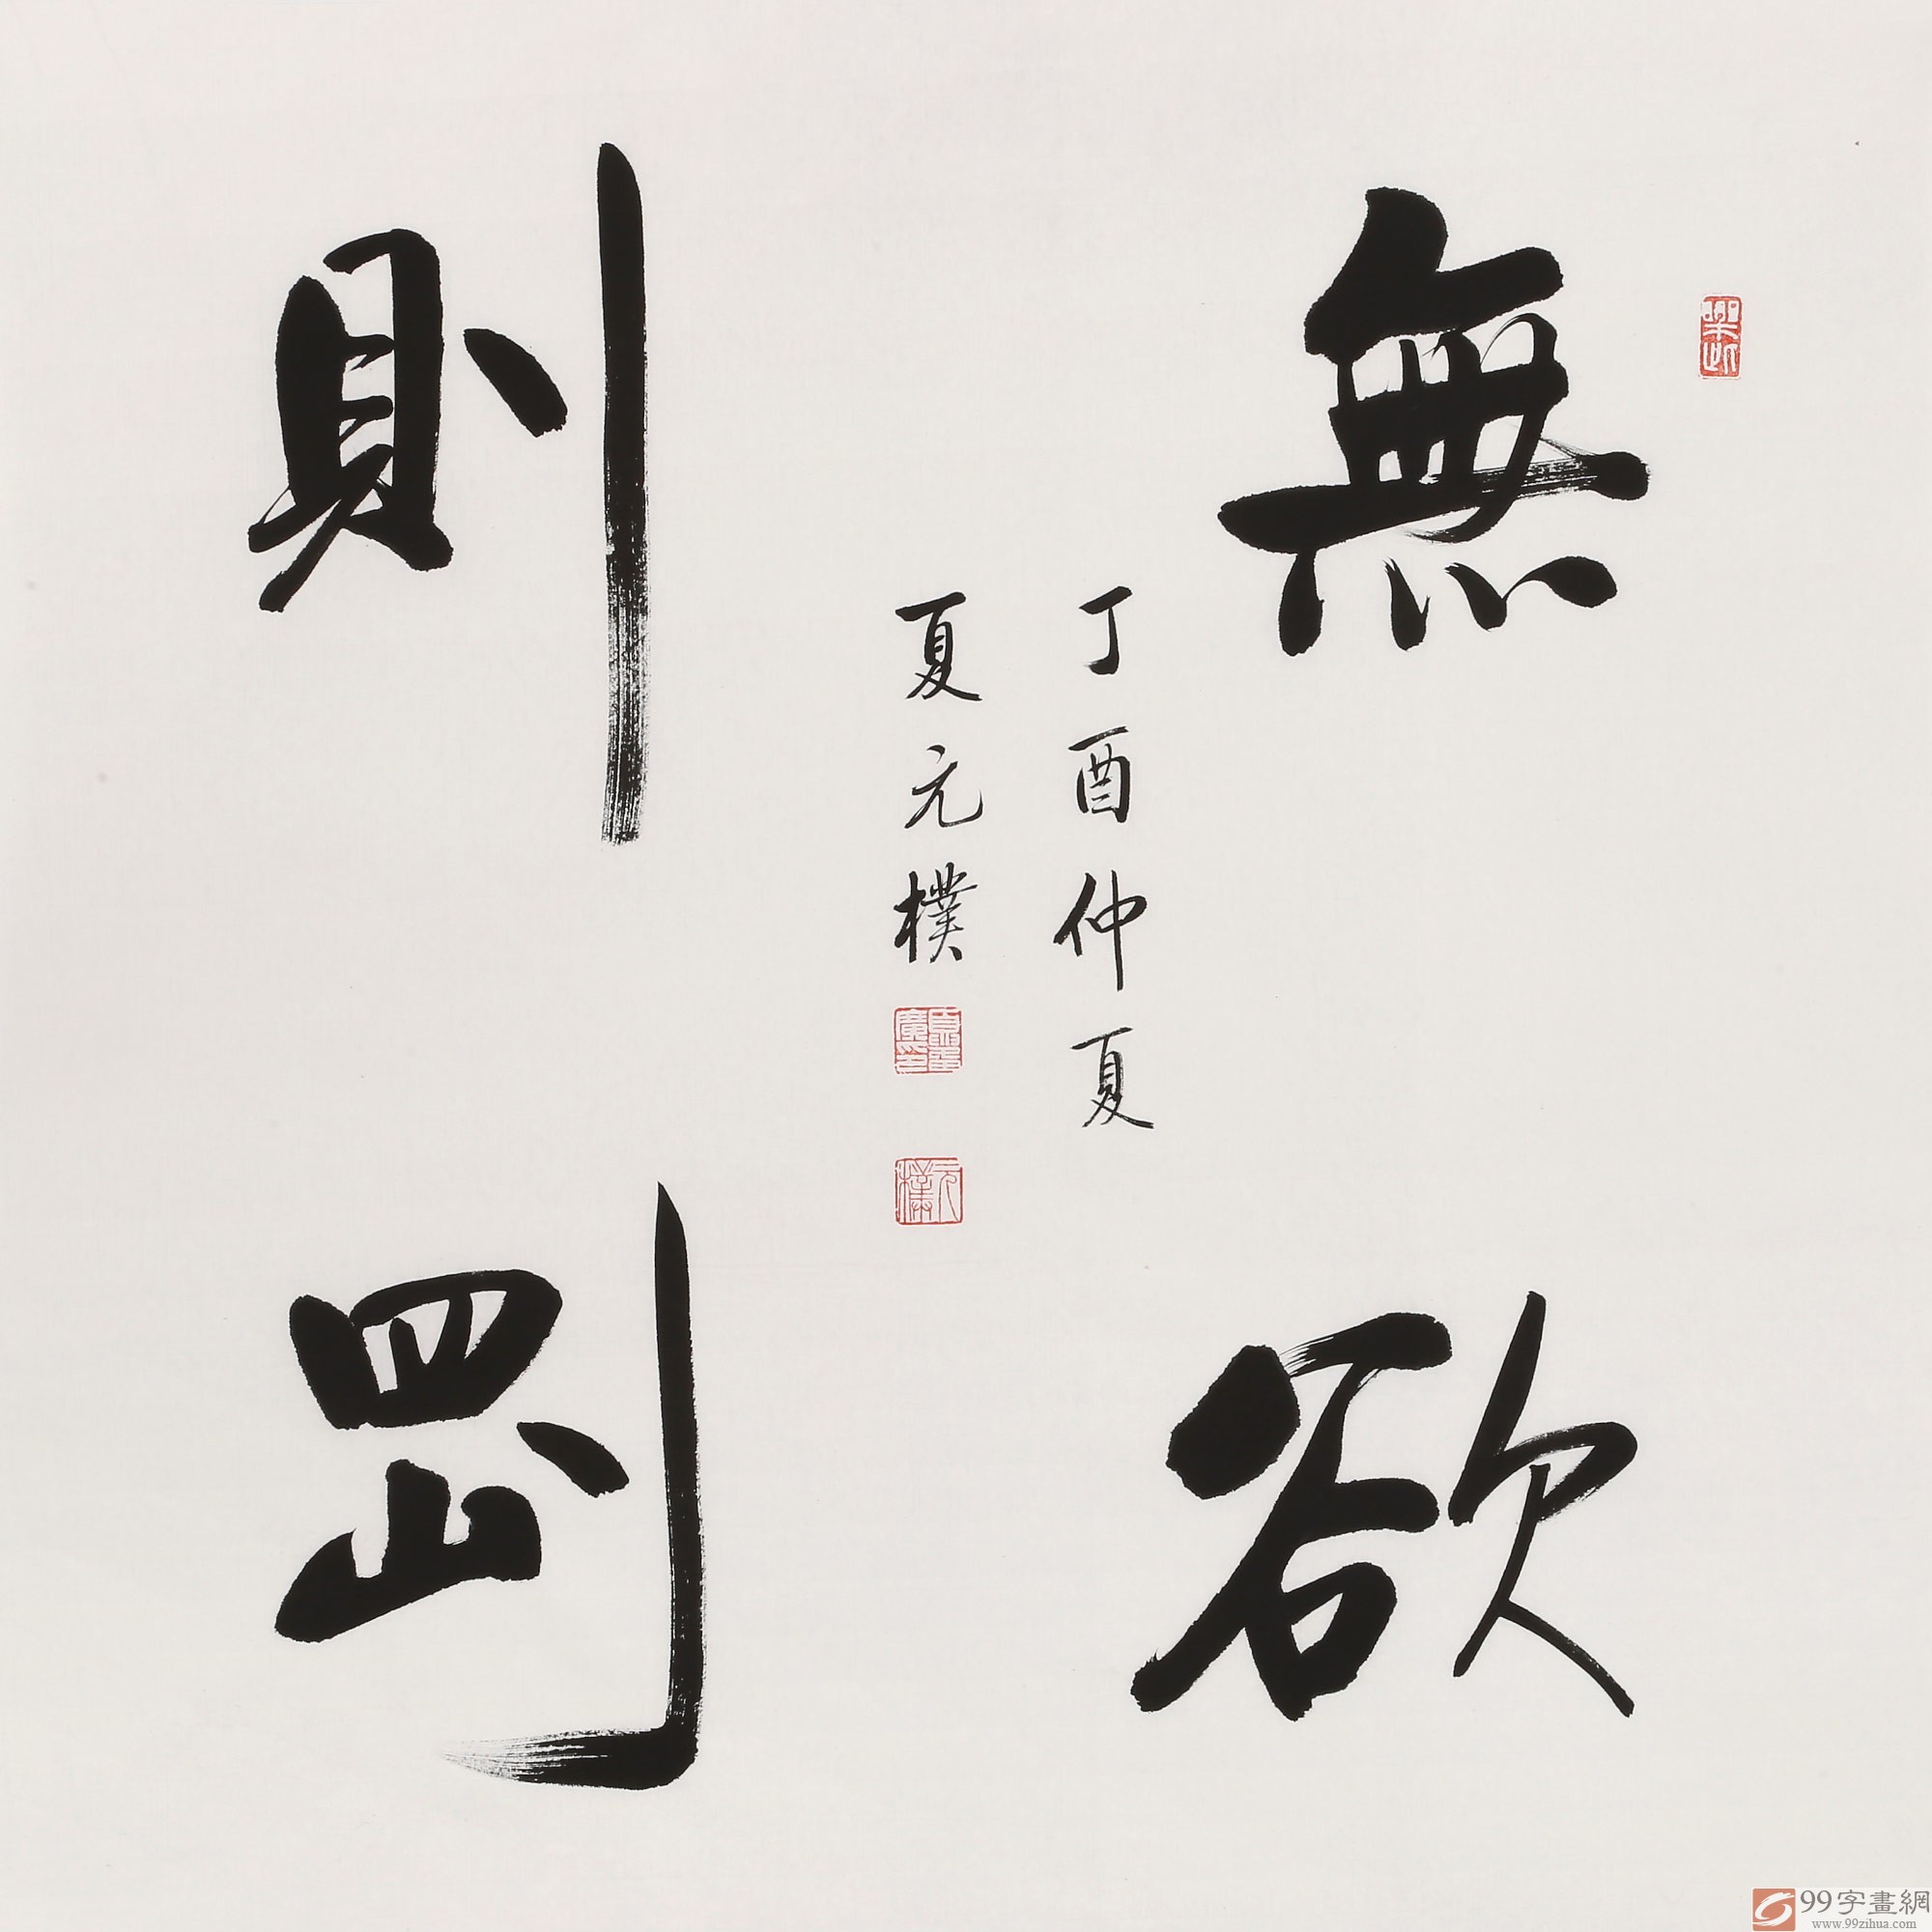 無欲
則剛
丁酉仲夏
夏元樸
元樸
99字畫網
www.99zihua.com